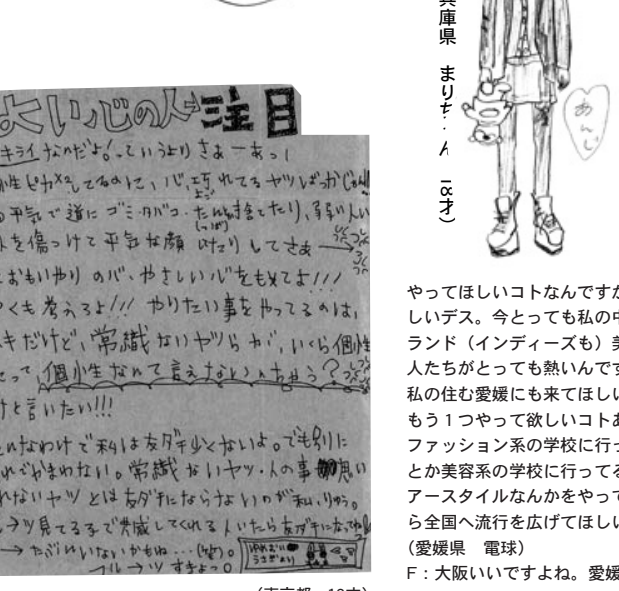 い心の人に注目
キライなんだよ!っていうよりさぁーあっ!
個性ピカ×2してるのに、心、汚れてるヤツばっかじゃん!!
よご
平気で道にゴミ・タバコ・たん捨てたり、弱い人
を傷つけて平気な顔してさぁ→
おもいやりの心、やさしい心をもてよ!!!
くも考えろよ!!! やりたい事をやってるのは、
スキだけど、常識ないヤツらが、いくら個性
って、個性なんて言えないんちゃう?
けと言いたい!!!
そんなわけで私は友ダチ少くないよ。でも別に
かまわない。常識ないヤツ・人の事思い
れないヤツとは友ダチにならないのが私、りゅう。
見てる子で共感してくれる人いたら友ダチになってね
→たぶんいないかもね…(笑)。
フルーツすきよっ。
(東京都 18才)
兵庫県 まりち ん 18才)
あんじ
やってほしいコトなんですが
しいデス。今とっても私の中
ランド(インディーズも)美
人たちがとっても熱いんです
私の住む愛媛にも来てほしい
もう1つやって欲しいコトあ
ファッション系の学校に行っ
とか美容系の学校に行ってる
アースタイルなんかをやって
ら全国へ流行を広げてほしい
(愛媛県 電球)
F:大阪いいですよね。愛媛